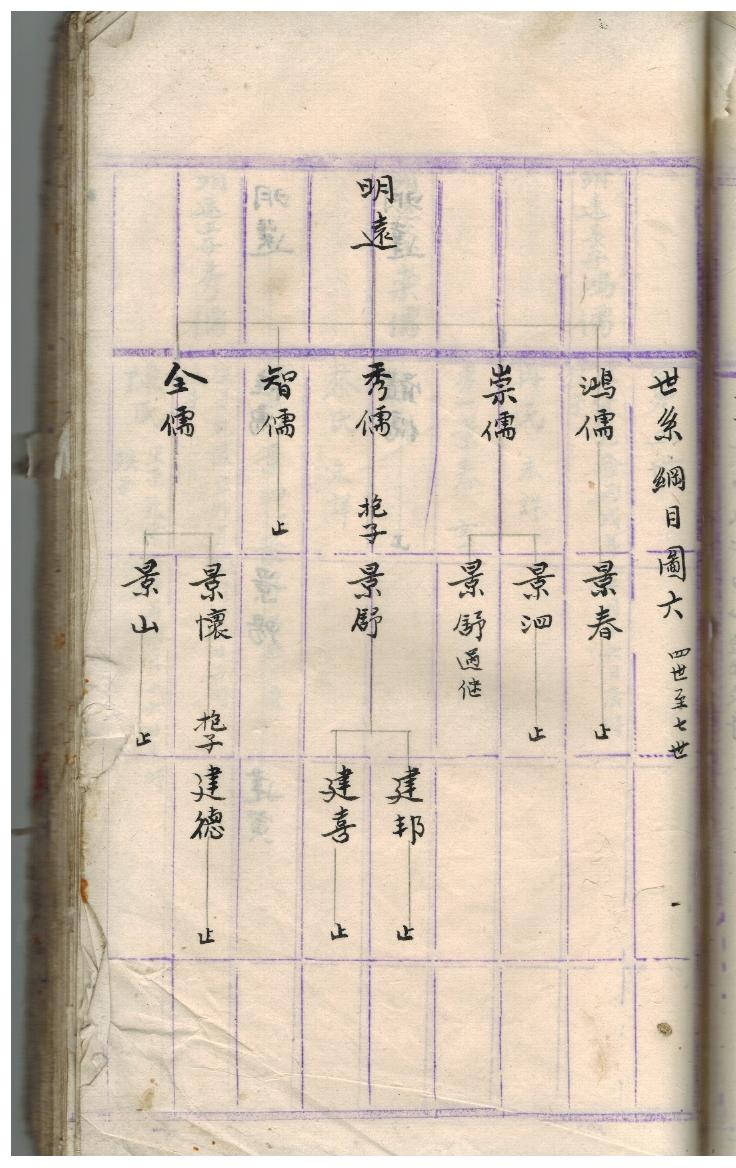 世系綱目圖六 四世至七世
明遠
鴻儒
崇儒
秀儒
智儒
全儒
止
抱子
景春
景泗
景舒過继
景舒
景懷
景山
止
止
止
抱子
建邦
建喜
建德
止
止
止